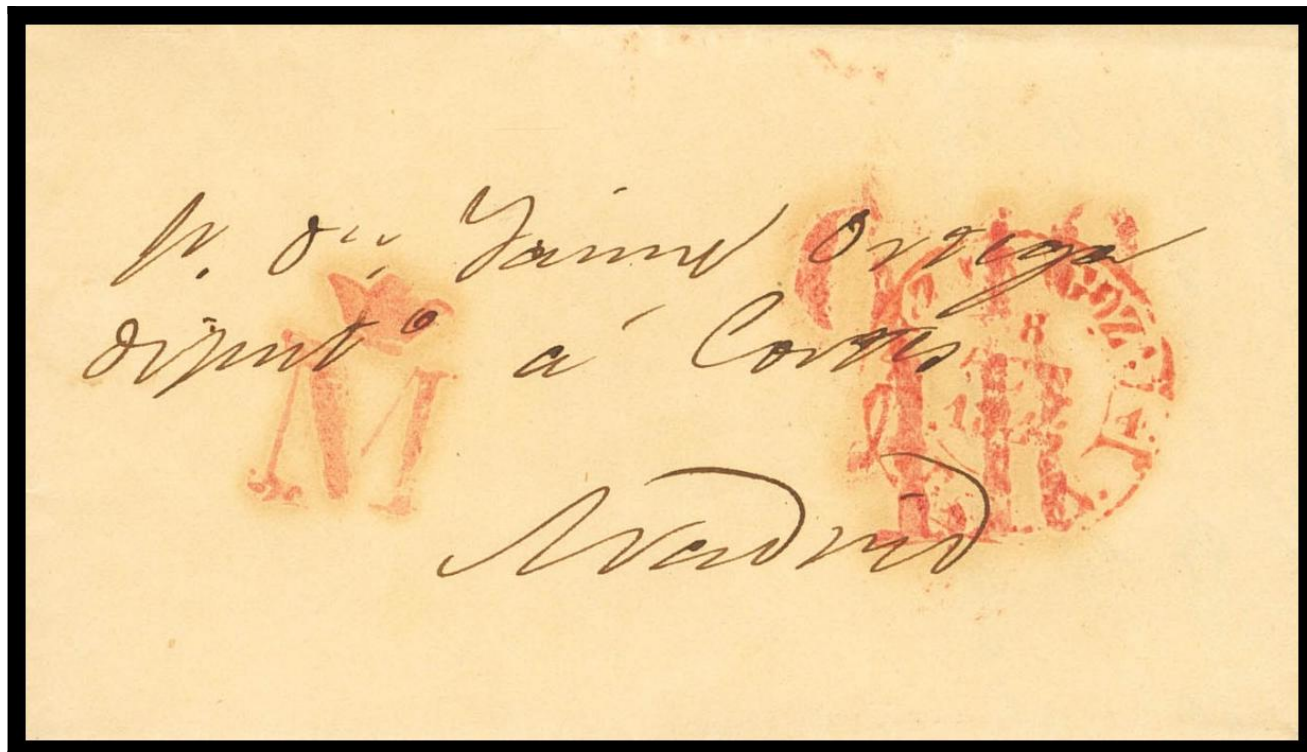 Sr. Dn Jaime Ortega
Diputo a Cortes
Madrid
M
8